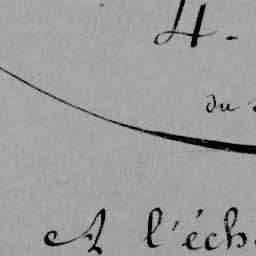 4.
du
A l'éch